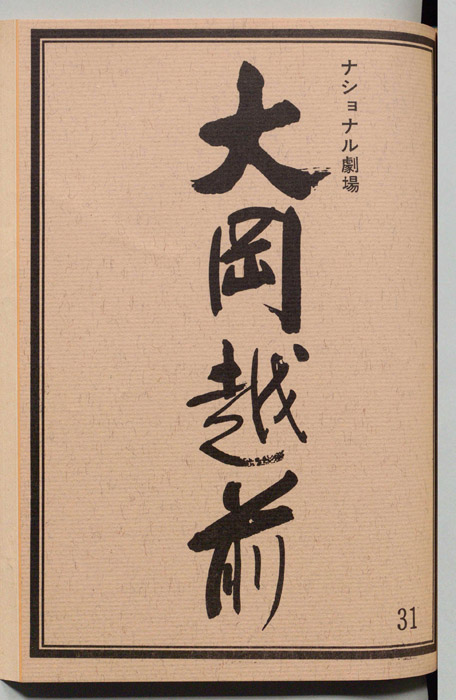 ナショナル劇場
大岡越前
31